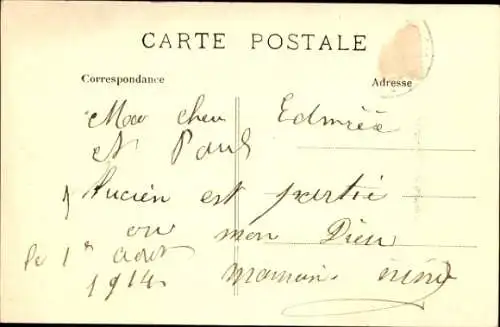 CARTE POSTALE
Correspondance
Adresse
Edmée
et Paul
Lucien est partie
mon Dieu
le 1er août
1914
maman